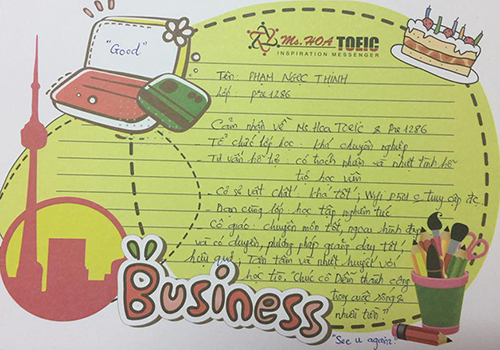 "Good"
Ms.HOA TOEIC
INSPIRATION MESSENGER
Tên: PHẠM NGỌC THỊNH
Lớp: pre 1286
Cảm nhận về Ms Hoa TOEIC & Pre 1286
Tổ chức lớp học: khá chuyên nghiệp
Tư vấn hỗ trợ: có trách nhiệm và nhiệt tình hỗ
trợ học viên
Cơ sở vật chất: khá tốt; Wifi truy cập
Bạn cùng lớp: học tập nghiêm túc
Cô giáo: chuyên môn tốt, ngoại hình đẹp
và có duyên, phương pháp giảng dạy tốt,
hiệu quả; Tận tâm và nhiệt huyết với
học trò, "Chúc cô Diễm thành công
trong cuộc sống &
nhiều tiền"
Business
"See u again!"